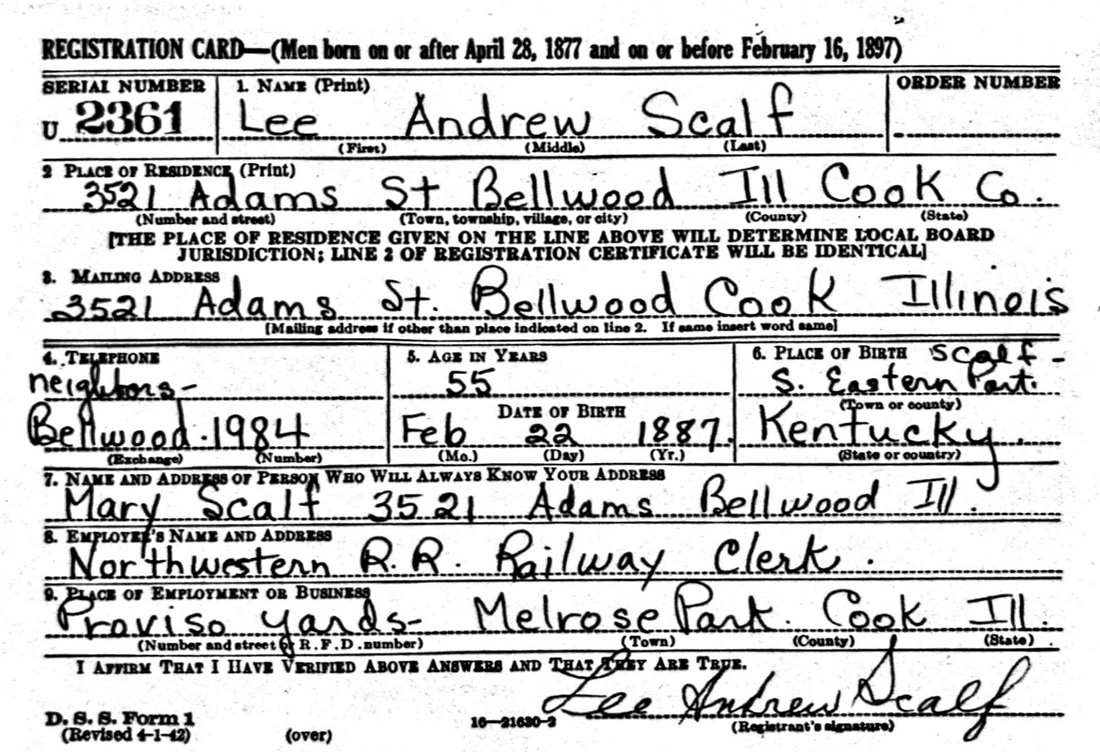 REGISTRATION CARD—(Men born on or after April 28, 1877 and on or before February 16, 1897)
SERIAL NUMBER 1. NAME (Print) ORDER NUMBER
U 2361 Lee Andrew Scalf
(First) (Middle) (Last)
2 PLACE OF RESIDENCE (Print)
3521 Adams St Bellwood Ill Cook Co.
(Number and street) (Town, township, village, or city) (County) (State)
[THE PLACE OF RESIDENCE GIVEN ON THE LINE ABOVE WILL DETERMINE LOCAL BOARD
JURISDICTION; LINE 2 OF REGISTRATION CERTIFICATE WILL BE IDENTICAL]
3. MAILING ADDRESS
3521 Adams St. Bellwood Cook Illinois
[Mailing address if other than place indicated on line 2. If same insert word same]
4. TELEPHONE 5. AGE IN YEARS 6. PLACE OF BIRTH Scalf -
neighbors- 55 S. Eastern Part.
DATE OF BIRTH (Town or county)
Bellwood. 1984 Feb 22 1887. Kentucky.
(Exchange) (Number) (Mo.) (Day) (Yr.) (State or country)
7. NAME AND ADDRESS OF PERSON WHO WILL ALWAYS KNOW YOUR ADDRESS
Mary Scalf 3521 Adams Bellwood Ill.
8. EMPLOYER'S NAME AND ADDRESS
Northwestern R.R. Railway Clerk.
9. PLACE OF EMPLOYMENT OR BUSINESS
Proviso yards- Melrose Park. Cook Ill.
(Number and street or R. F. D. number) (Town) (County) (State)
I AFFIRM THAT I HAVE VERIFIED ABOVE ANSWERS AND THAT THEY ARE TRUE.
Lee Andrew Scalf
D. S. S. Form 1 16—21630-2 (Registrant's signature)
(Revised 4-1-42) (over)